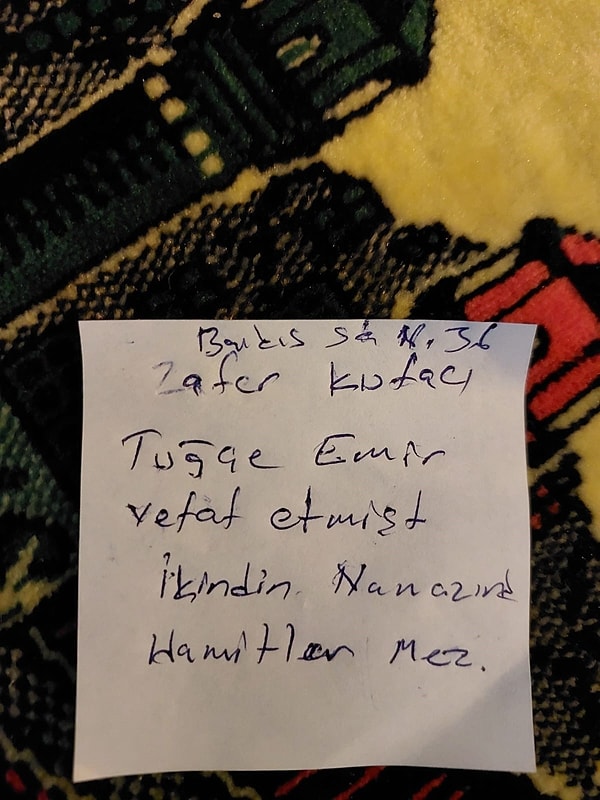 Balkıs Sk N. 36
Zafer Kıofacı
Tuğçe Emir
vefat etmişt
İkindin Namazınd
Hamitler Mez.